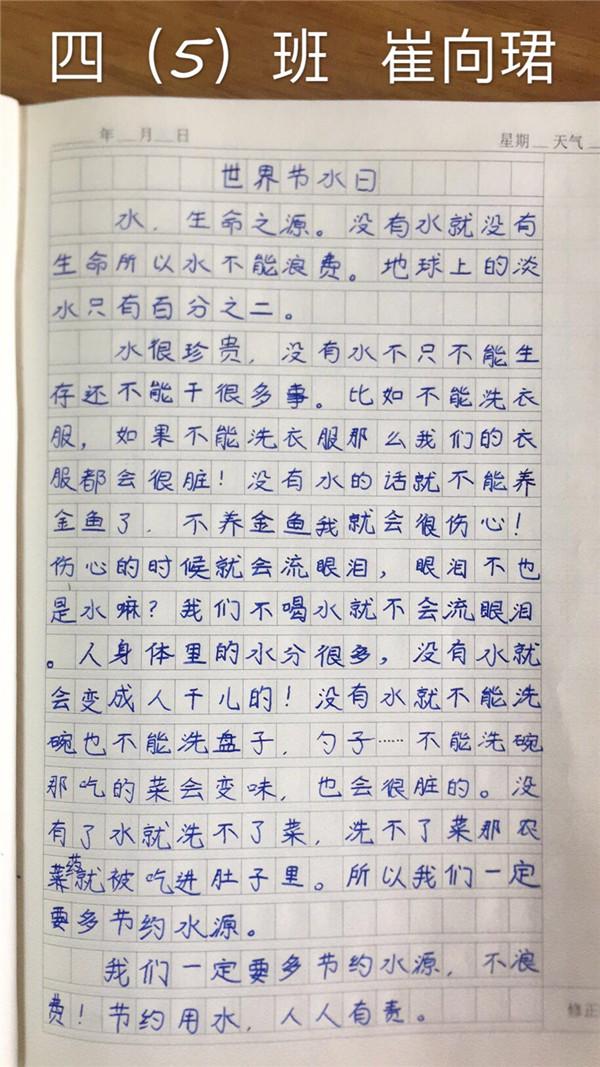 四（5）班 崔向珺
年 月 日 星期 天气
世界节水日
水，生命之源。没有水就没有
生命所以水不能浪费。地球上的淡
水只有百分之二。
水很珍贵，没有水不只不能生
存还不能干很多事。比如不能洗衣
服，如果不能洗衣服那么我们的衣
服都会很脏！没有水的话就不能养
金鱼了，不养金鱼我就会很伤心！
伤心的时候就会流眼泪，眼泪不也
是水嘛？我们不喝水就不会流眼泪
。人身体里的水分很多，没有水就
会变成人干儿的！没有水就不能洗
碗也不能洗盘子，勺子……不能洗碗
那吃的菜会变味，也会很脏的。没
有了水就洗不了菜，洗不了菜那农
药就被吃进肚子里。所以我们一定
要多节约水源。
我们一定要多节约水源，不浪
费！节约用水，人人有责。
修正